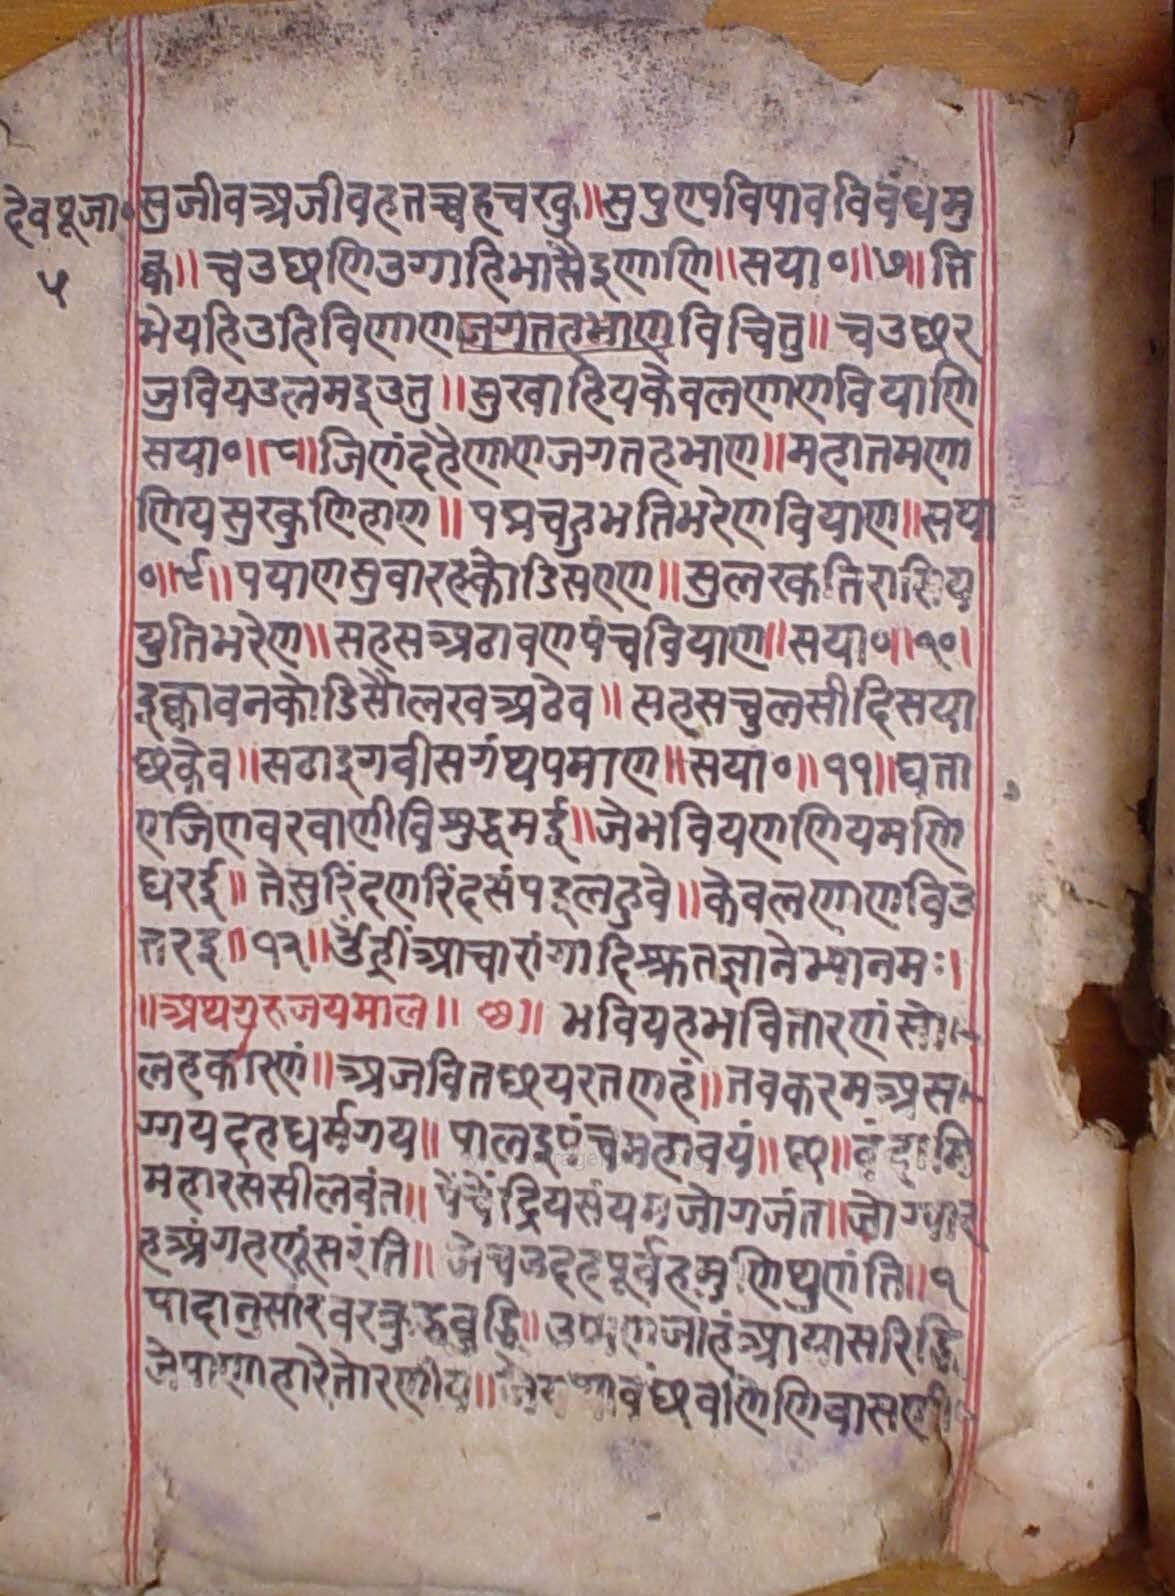 देवपूजा॰
५
सुजीवअजीवहतच्चहचरकु॥सुपुएपविपावविबंधमु
क्क॥चउछणिउग्गहिभासैइणाणि॥सया॰॥७॥ति
भेयहिउहिविणाणजगतहभाणविचितु॥चउछर
जुवियउलमइउतु॥सुखाहियकेवलणाणवियाणि
सया॰॥८॥जिणंदहेणाणजगतहभाण॥महातमणा
णियसुरकुणिहाण॥पप्रचहुभतिभरेणवियाण॥सया
॰॥९॥पयाणसुवारहकोडिसएण॥सुलरकतिरासिय
युतिभरेण॥सहसअठावणपंचवियाण॥सया॰॥१०॥
इक्कावनकोडिसोलखअठेव॥सहसचुलसीदिसया
छकेव॥सढाइगवीसगंथपमाण॥सया॰॥११॥घता
एजिणवरवाणीविशुद्धमई॥जेभवियणणियमणि
धरई॥तेसुरिंदणरिंदसंपइलहुवे॥केवलणाणविउ
त्तरइ॥१२॥ॐह्रींआचारांगादिश्रुतज्ञानेभ्योनमः।
॥अथगुरुजयमाल॥छ॥भवियहभवितारणंसो
लहकारणं॥अजवितछयरतणहं॥तवकरमअस
ग्गयदहधर्मगय॥पालइपंचमहावयं॥छ॥वंदामि
महारससीलवंत॥पंचेंद्रियसंयमजोगजंत॥जेग्यार
हअंगहणुंसरंति॥जेचउदहपूर्वहमुणिथुणंति॥१
पादानुसारवरकुद्धबुद्धि॥उपणजाहंआयासरिद्धि
जेपाणाहारेतोरणीय॥